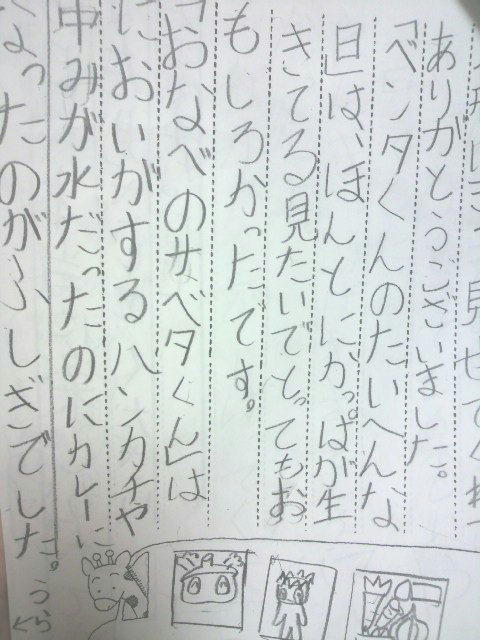 見せてくれ
ありがとうございました。
「ベンタくんのたいへんな
日」は、ほんとにかっぱが生
きてる見たいでとってもお
もしろかったです。
「おなべのサベタくん」は
においがするハンカチや
中みが水だったのにカレーに
なったのがふしぎでした。
うら